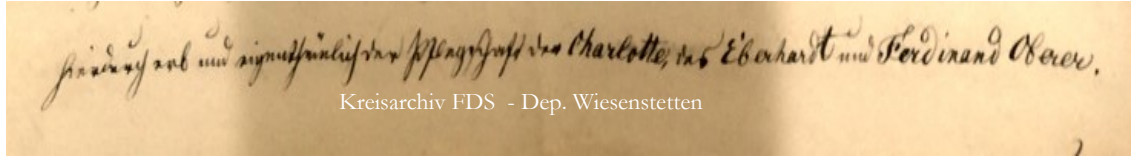 hierdurch erb und eigenthümlich der Pflegschaft der Charlotte, des Eberhardt und Ferdinand Oberer.
Kreisarchiv FDS - Dep. Wiesenstetten